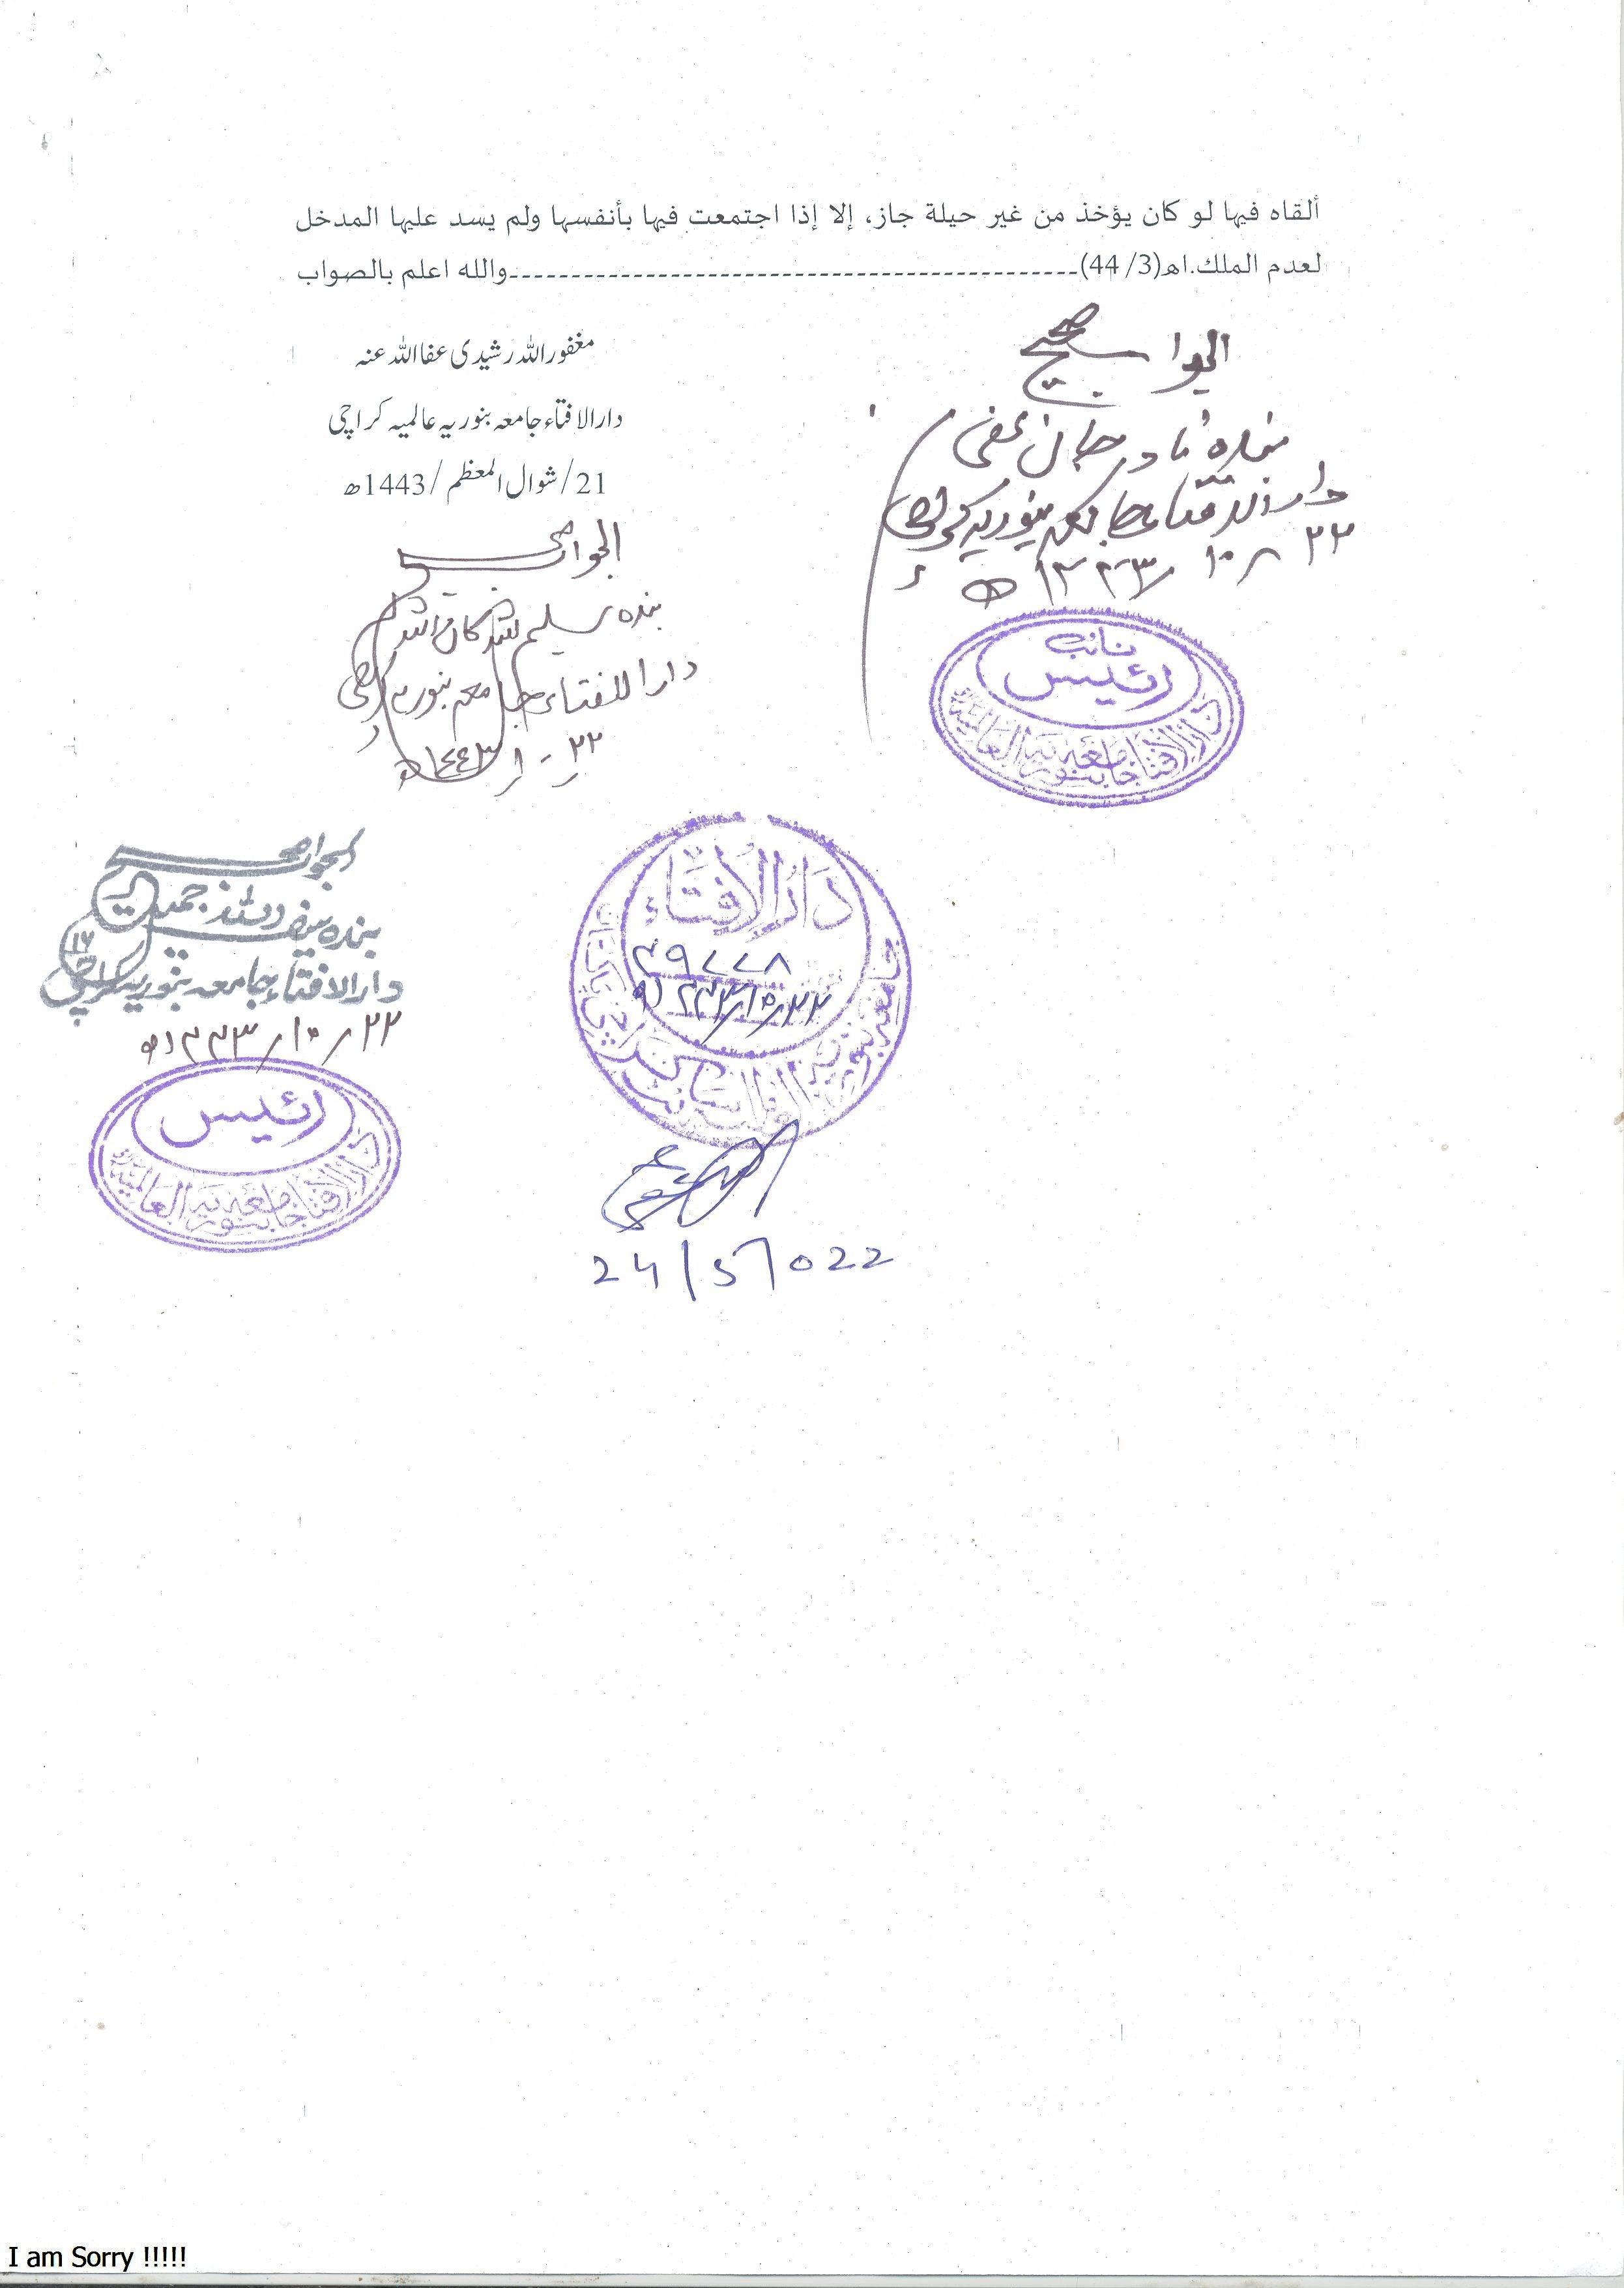 ألقاه فيها لو كان يؤخذ من غير حيلة جاز، إلا إذا اجتمعت فيها بأنفسها ولم يسد عليها المدخل
لعدم الملك.اھ(3/ 44)----------------------------------------------والله اعلم بالصواب
مغفور اللہ رشیدی عفا اللہ عنہ
دارالافتاء جامعہ بنوریہ عالمیہ کراچی
21/شوال المعظم/1443ھ
الجواب صحیح
بندہ نادر جان عفی
دار الافتاء جامعہ بنوریہ کراچی
۲۲ / ۱۰ / ۱۴۴۳ ھ
نائب
رئیس
دارالافتا جامعہ بنوریہ العالمیہ
الجواب صحیح
بندہ سلیم اللہ
دارالافتاء جامعہ بنوریہ کراچی
۲۲ - ۱۰ - ۱۴۴۳ھ
الجواب صحیح
بندہ سیف اللہ جمیل
دارالافتاء جامعہ بنوریہ کراچی
۲۲ / ۱۰ / ۱۴۴۳ھ
رئیس
دارالافتا جامعہ بنوریہ العالمیہ
دار الإفتاء
۴۹۷۷۸
۲۲/۱۰/۴۴۳ ھ
جامعہ بنوریہ العالمیہ
24/5/022
I am Sorry !!!!!